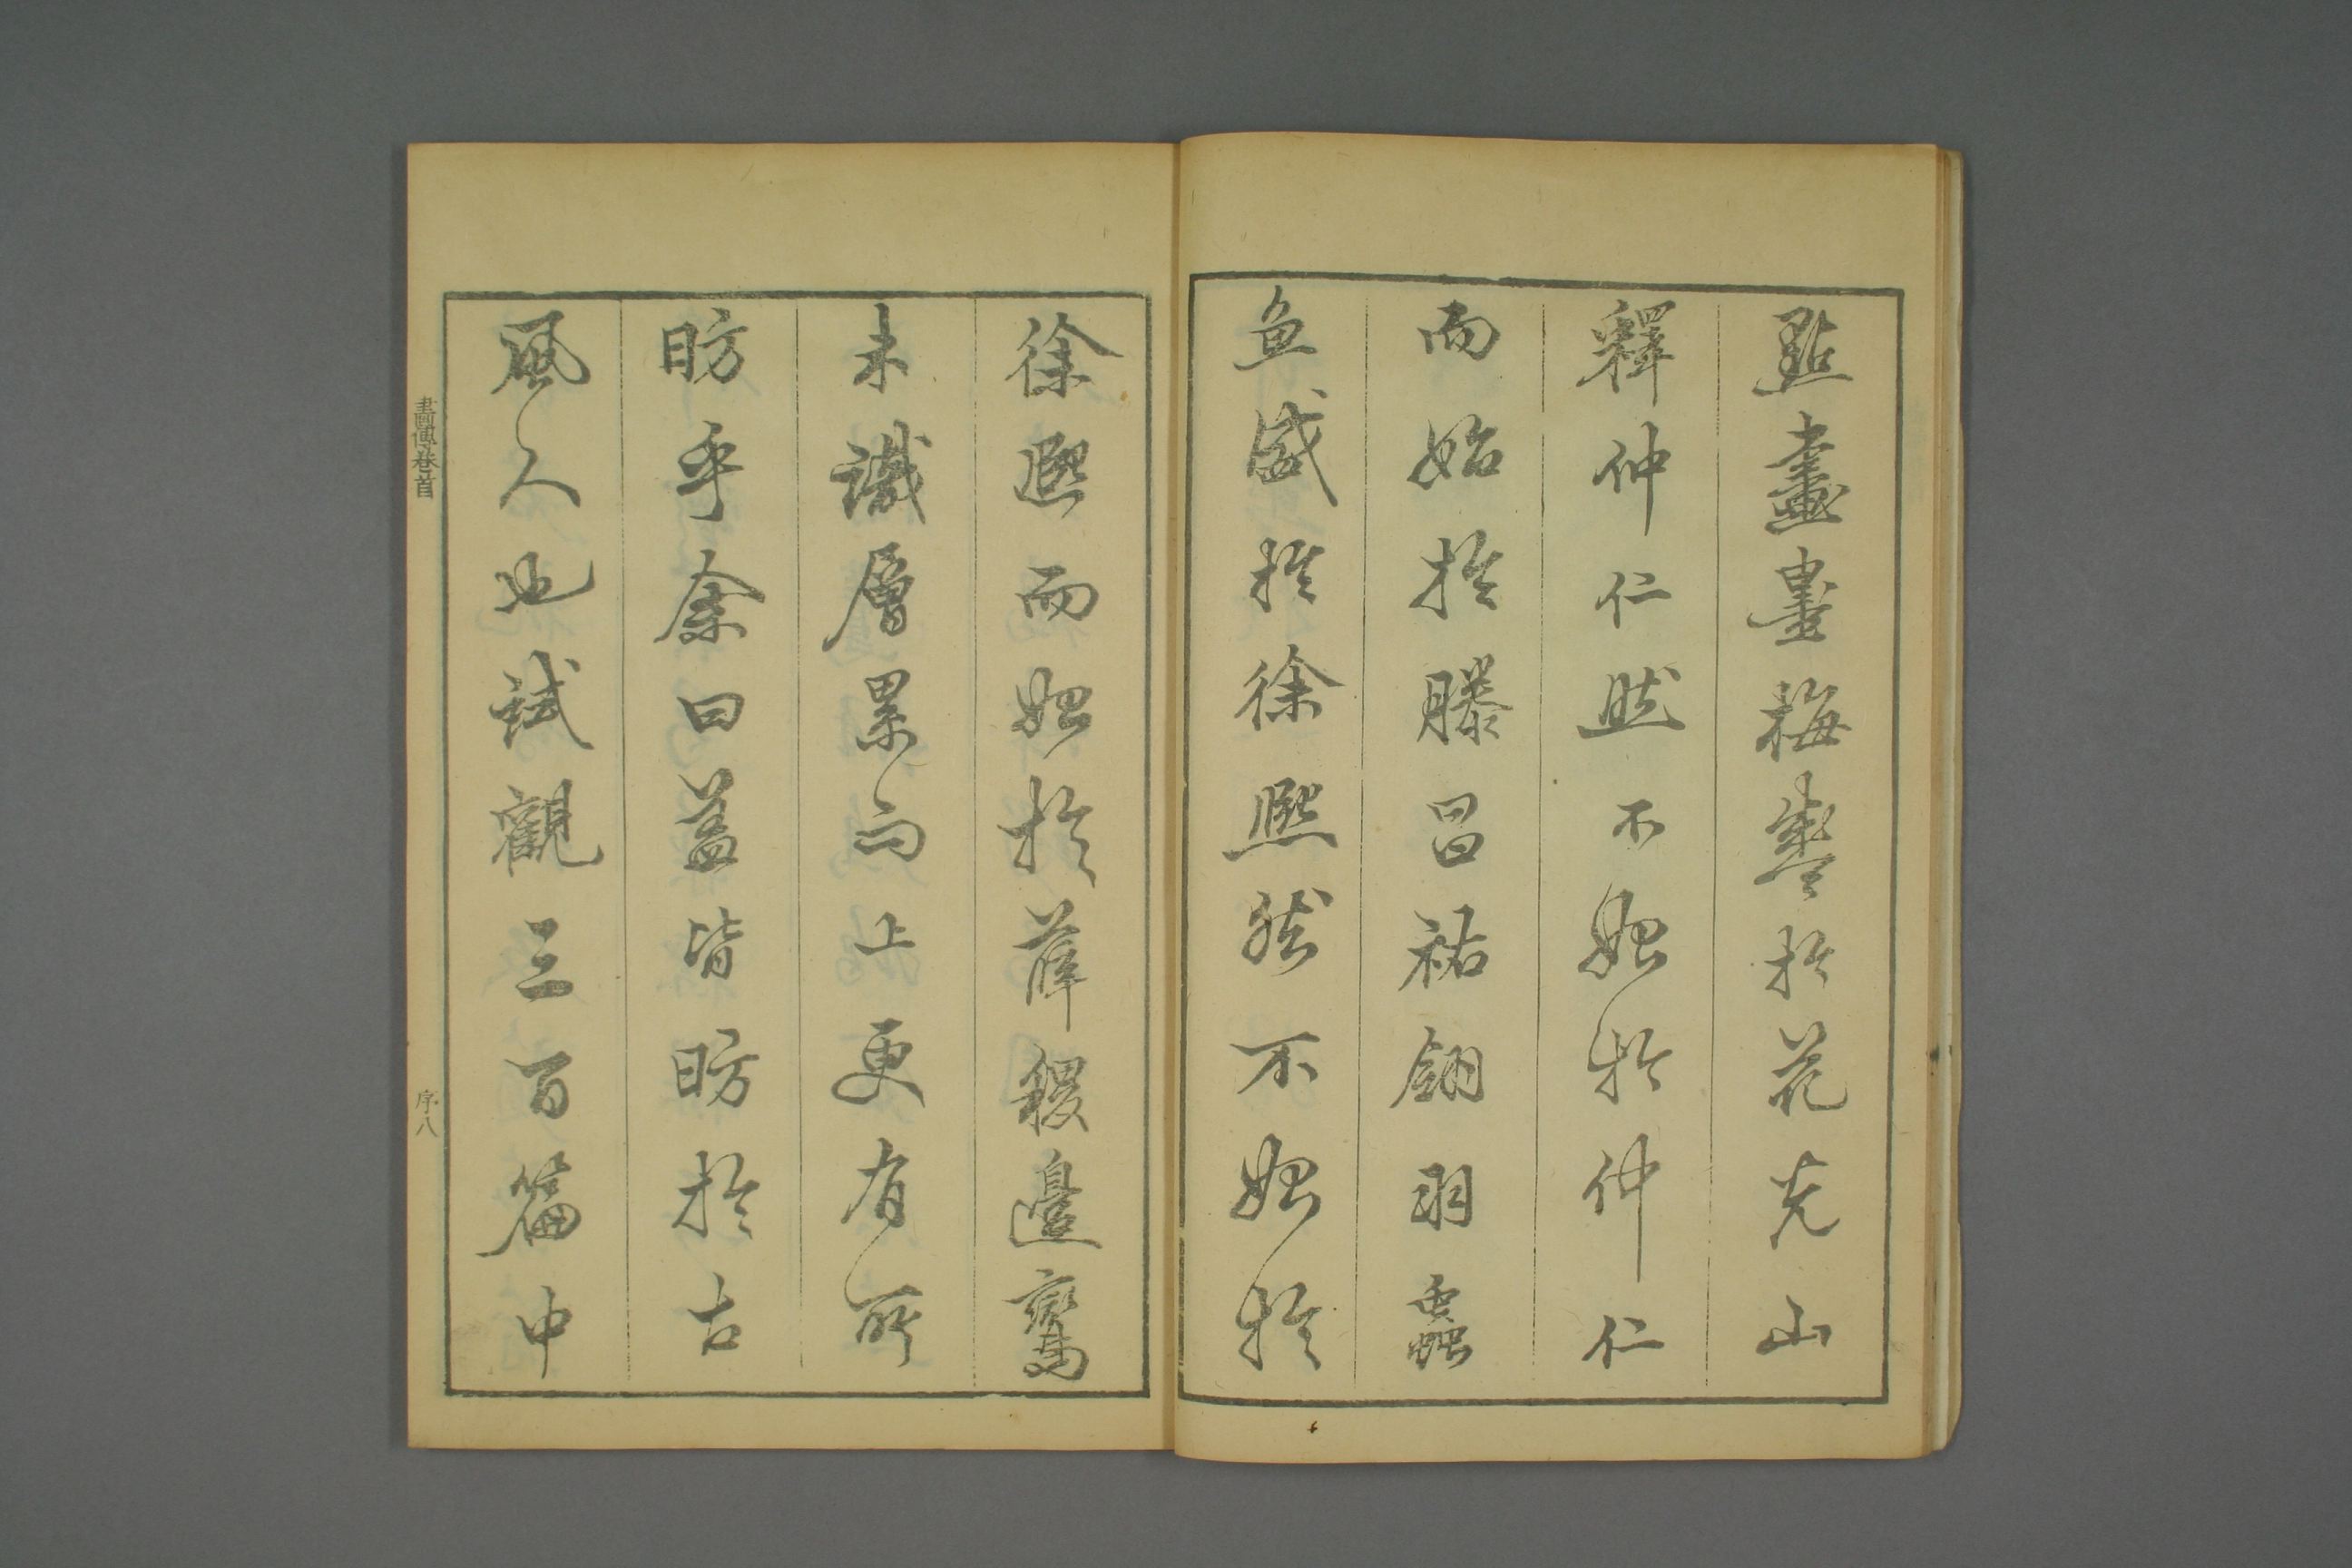 點畫墨梅肇於花光山
釋仲仁然不始於仲仁
而始於滕昌祐翎羽蟲
魚盛於徐熙然不始於
徐熙而始於薛稷邊鸞
未識層累而上更有所
昉乎余曰蓋皆昉於古
風人也試觀三百篇中
畫傳卷首
序八